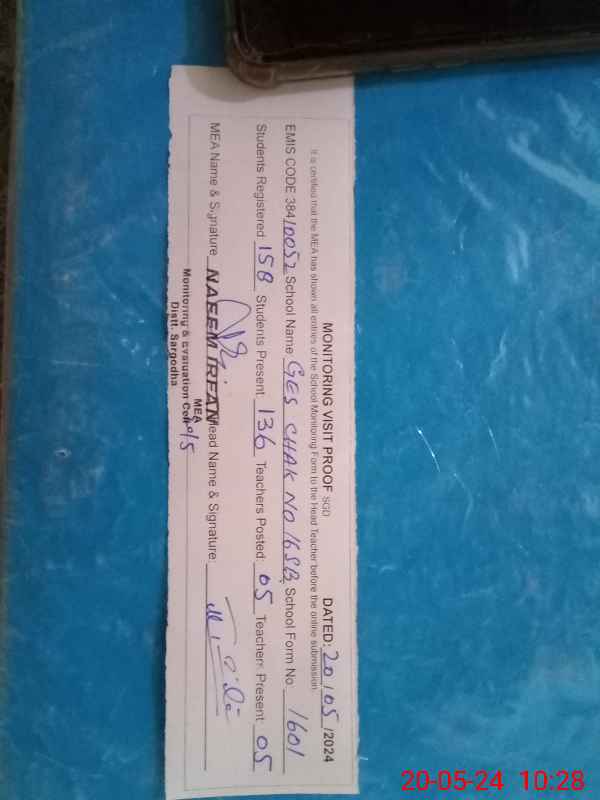 MONITORING VISIT PROOF SGD DATED: 20/05/2024
It is certified that the MEA has shown all entries of the School Monitoring Form to the Head Teacher before the online submission.
EMIS CODE 38410052 School Name GES CHAK NO 16SB School Form No 1601
Students Registered 158 Students Present 136 Teachers Posted: 05 Teachers Present 05
MEA Name & Signature NAEEM IRFAN Head Name & Signature:
MEA
Monitoring & Evaluation Cell
Distt. Sargodha
20-05-24 10:28